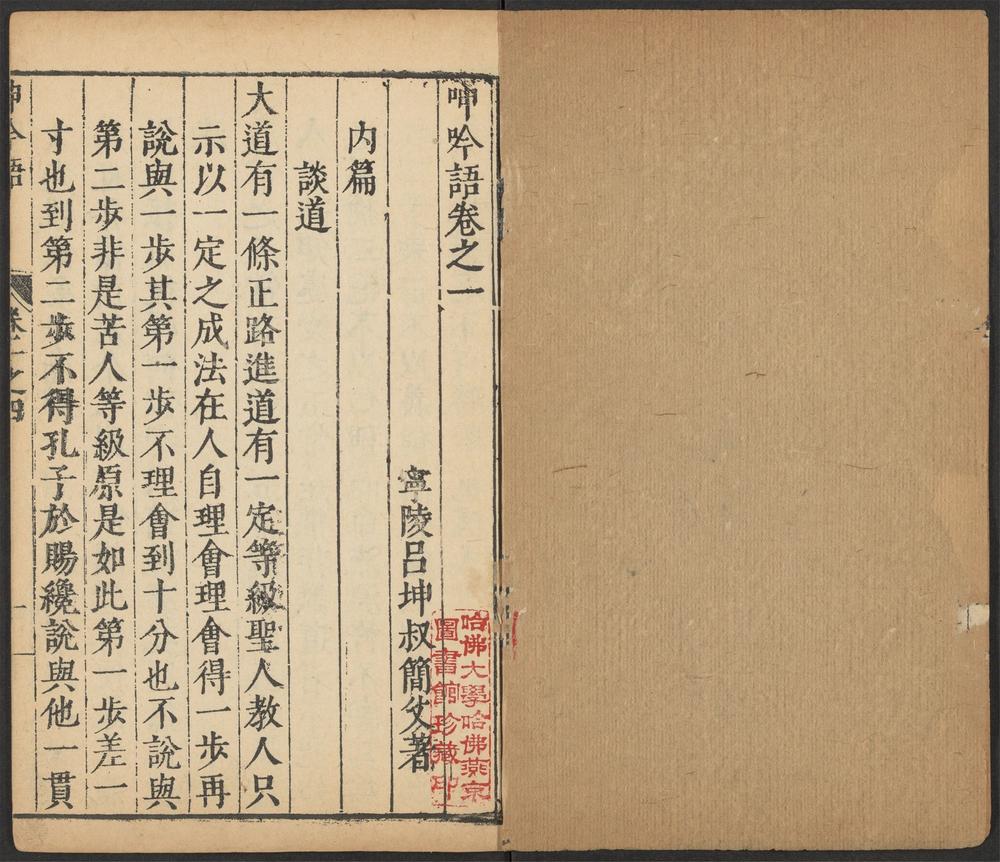 呻吟語卷之一
寧陵呂坤叔簡父著
內篇
談道
大道有一條正路進道有一定等級聖人教人只
示以一定之成法在人自理會理會得一步再
說與一步其第一步不理會到十分也不說與
第二步非是苦人等級原是如此第一步差一
寸也到第二步不得孔子於賜纔說與他一貫
呻吟語
卷一之四
一
哈佛大學哈佛燕京
圖書館珍藏印